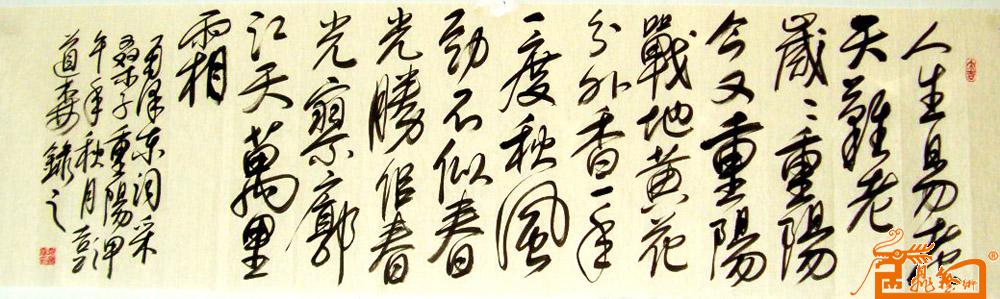 人生易老
天難老
歲々重陽
今又重陽
戰地黃花
分外香一年
一度秋風
勁不似春
光勝佀春
光寥廓
江天萬里
霜
毛澤東詞采
桑子重陽甲
午年秋月
道録之